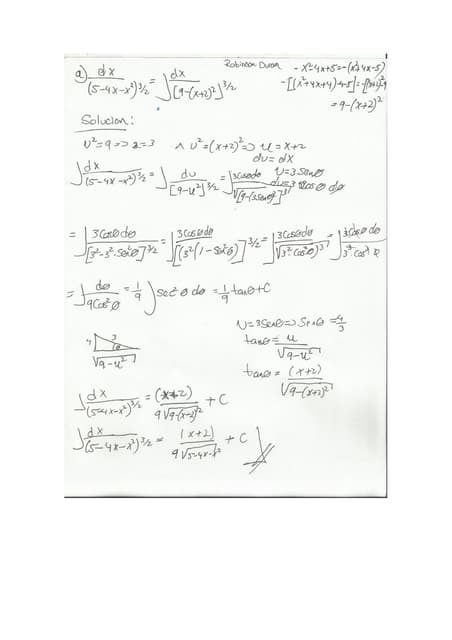 Robinson Duran
a) dx/(5-4x-x²)^3/2 = ∫ dx/[9-(x+2)²]^3/2
-x²-4x+5=-(x²+4x-5)
-[(x²+4x+4)-4-5]=-[(x+2)²-9]
=9-(x+2)²
Solucion:
U²=9 => a=3 ∧ u²=(x+2)² => u=x+2
du=dx
∫ dx/(5-4x-x²)^3/2 = ∫ du/[9-u²]^3/2 = ∫ 3cosθdθ/√[9-(3senθ)²]³
U=3Senθ
du=3cosθ dθ
= ∫ 3cosθdθ/[3²-3²·Sen²θ]^3/2 = ∫ 3cosθdθ/[(3²(1-Sen²θ)]^3/2 = ∫ 3cosθdθ/√(3²·cos²θ)³ = ∫ 3cosθ dθ/3³·cos³θ
= ∫ dθ/9Cos²θ = 1/9 ∫ sec²θ dθ = 1/9 tanθ+C
U=3Senθ => Senθ = u/3
u 3 θ √9-u²
tanθ = u/√9-u²
tanθ = (x+2)/√9-(x+2)²
∫ dx/(5-4x-x²)^3/2 = (x+2)/9√9-(x+2)² + C
∫ dx/(5-4x-x²)^3/2 = (x+2)/9√5-4x-x² + C